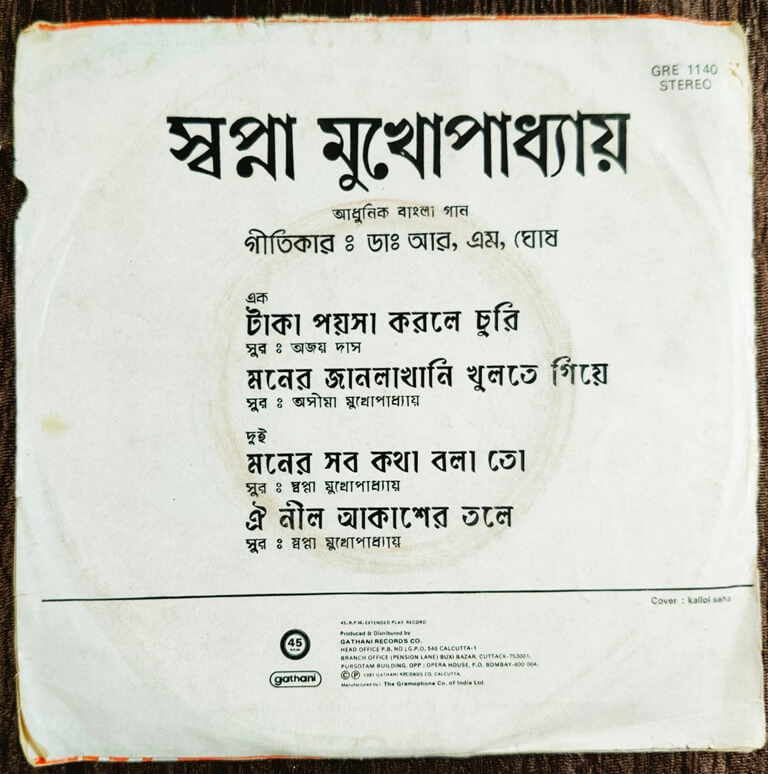 GRE 1140
STEREO
স্বপ্না মুখোপাধ্যায়
আধুনিক বাংলা গান
গীতিকার : ডাঃ আর, এম, ঘোষ
এক
টাকা পয়সা করলে চুরি
সুর : অজয় দাস
মনের জানলাখানি খুলতে গিয়ে
সুর : অসীমা মুখোপাধ্যায়
দুই
মনের সব কথা বলা তো
সুর : স্বপ্না মুখোপাধ্যায়
ঐ নীল আকাশের তলে
সুর : স্বপ্না মুখোপাধ্যায়
Cover : kallol saha
45 R.P.M.
gathani
45. R.P.M. EXTENDED PLAY RECORD
Produced & Distributed by
GATHANI RECORDS CO.
HEAD OFFICE P.B. NO ; G.P.O. 546 CALCUTTA-1
BRANCH OFFICE (PENSION LANE) BUXI BAZAR, CUTTACK-753001.
PURSOTAM BUILDING, OPP : OPERA HOUSE, P.O. BOMBAY-400 004.
© ℗ 1981 GATHANI RECORDS CO. CALCUTTA.
Manufactured by : The Gramophone Co. of India Ltd.